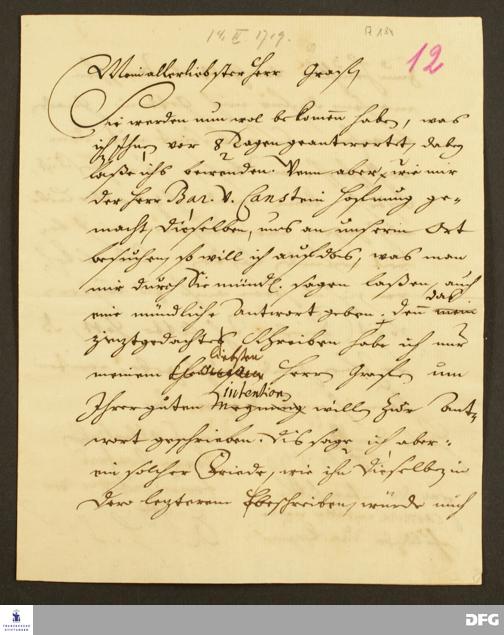 14. III. 1719.
A 184
12
Mein allerliebster Herr Graff,
Sie werden nun wol bekom̅en haben, was
ich Ihnen vor 8 Tagen geantwortet, dabey
laße ichs bewenden. Wenn aber, wie mir
der Herr Bar. v. Canstein hofnung ge-
macht, dieselben, uns an unserm Ort
besuchen, so will ich auf das, was man
mir durch Sie mündl. sagen laßen, auch
eine mündliche Antwort geben. Denn das
jeztgedachtes Schreiben habe ich nur
meinem liebsten Herrn Grafen um
Ihrer guten intention willen zur Ant-
wort geschrieben. Dis sage ich aber:
ein solcher Friede, wie ihn dieselben in
Dero lezterem beschreiben, würde mich
FRANCKESCHE STIFTUNGEN
DFG